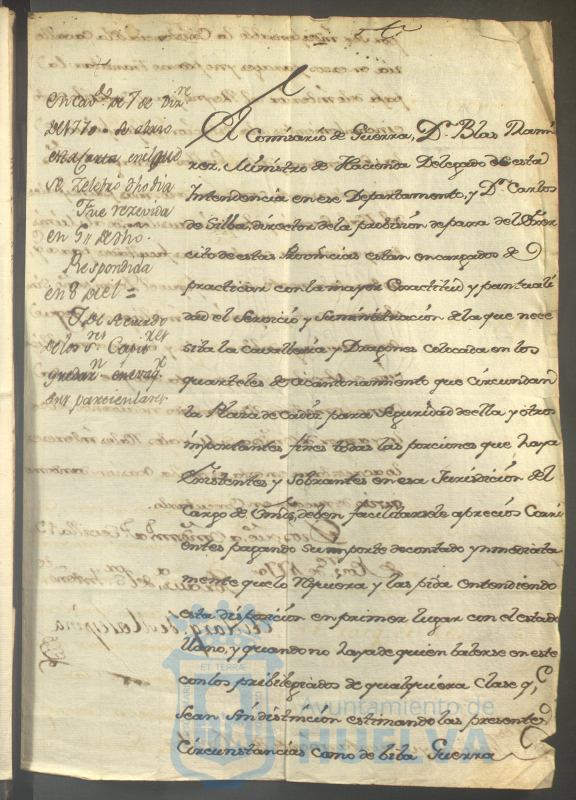 en cav.do de 7 de Diz.re
de 1770. Se abrio
esta Carta en el que
se zelebro dho dia
Fue rezevida
en 5 de dho.
Respondida
en 8 de el =
El Comisario de Guerra, D.n Blas Ramir
rez, Ministro de Hacienda Delegado de esta
Intendencia en ese Departamento, y D.n Carlos
de Silba, director de la probision de para del Exer
cito de estas Provincias estan encargados de
practicar con la mayor Exactitud y puntuali
dad el Servicio y Suministracion de la que nece
sita la cavalleria y Dragones colocada en los
quarteles de Acantonamiento que circundan
la Plaza de Cadiz para seguridad de ella y otros
importantes fines todas las porciones que haya
Existentes y Sobrantes en esa Jurisdicion del
Cargo de Vmds, deben facilitarsele a precios Corri
entes pagando su importe de contado y inmediata
mente que lo requiera y las pida entendiendo
esta disposicion en primer lugar con el estado
llano, y quando no haya de quien balerse en este
con los pribilegiados de qualquiera Clase q.e
sean sin distincion estimando las presentes
Circunstancias como de biba Guerra
ET TERRA
Ayuntamiento de
HUELVA